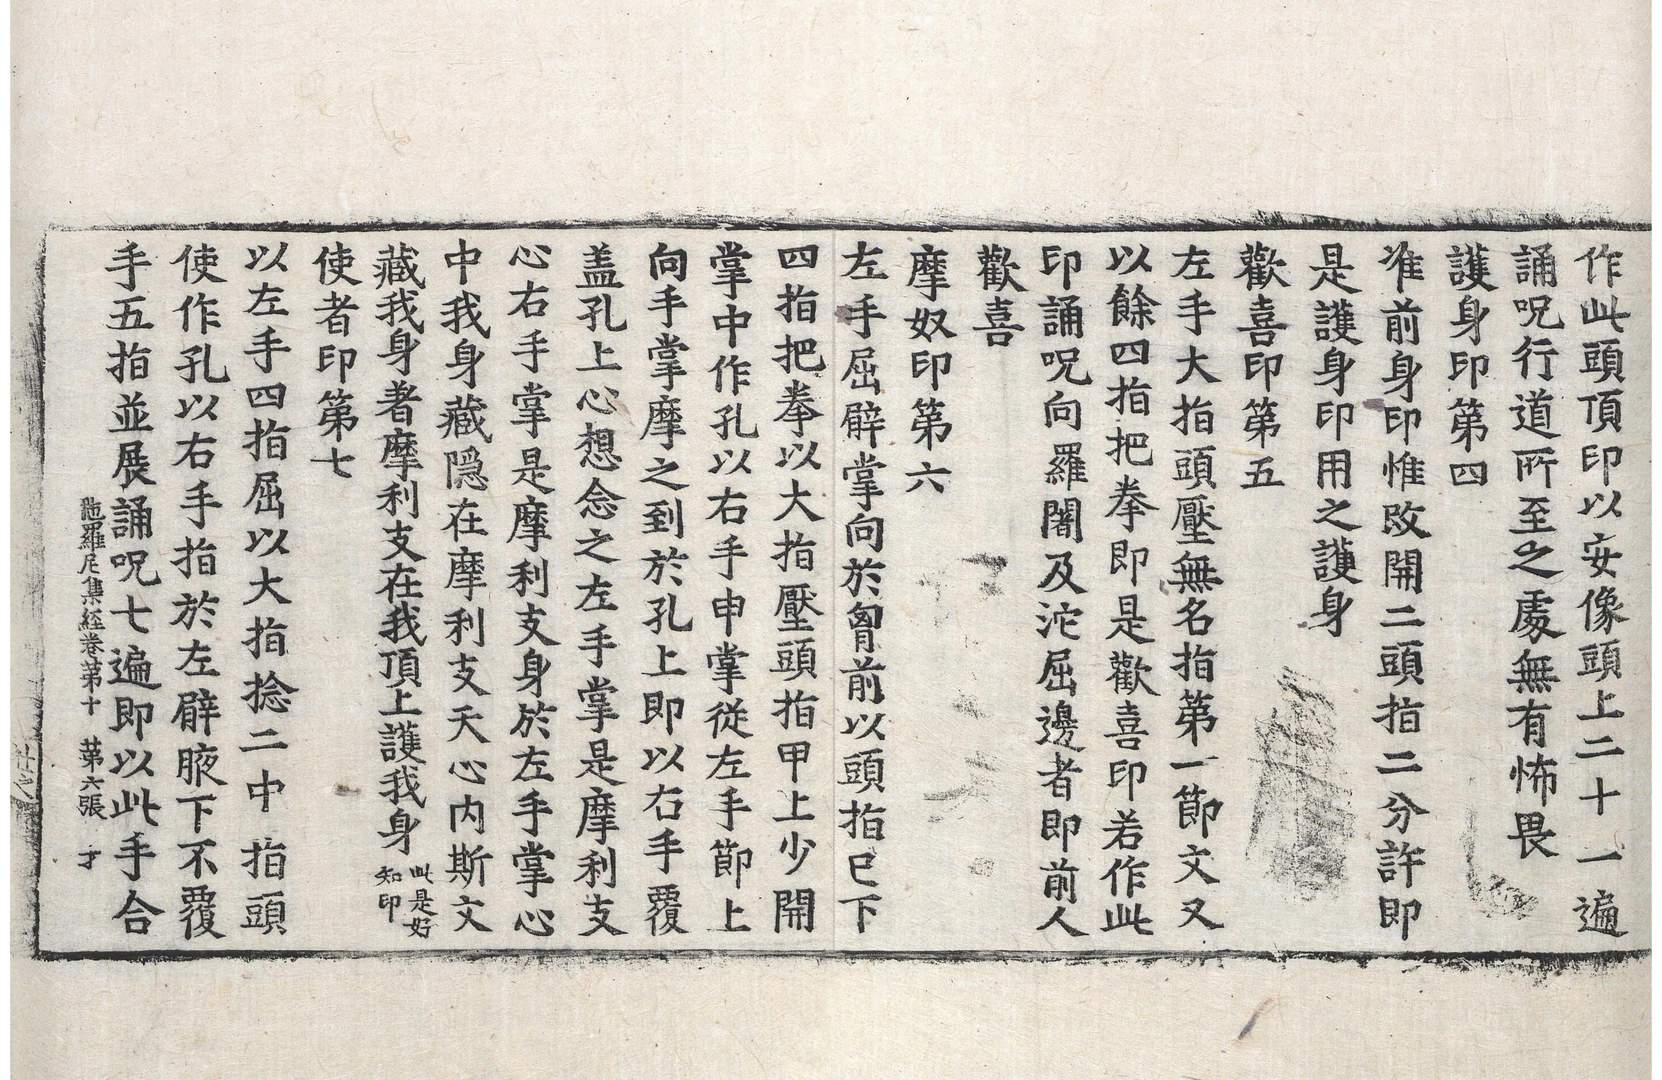 作此頭頂印以安像頭上二十一遍
誦呪行道所至之處無有怖畏
護身印第四
准前身印惟改開二頭指二分許即
是護身印用之護身
歡喜印第五
左手大指頭壓無名指第一節文又
以餘四指把拳即是歡喜印若作此
印誦呪向羅闍及沱屈邊者即前人
歡喜
摩奴印第六
左手屈臂掌向於胷前以頭指已下
四指把拳以大指壓頭指甲上少開
掌中作孔以右手申掌從左手節上
向手掌摩之到於孔上即以右手覆
盖孔上心想念之左手掌是摩利支
心右手掌是摩利支身於左手掌心
中我身藏隱在摩利支天心内斯文
藏我身者摩利支在我頂上護我身此是好知印
使者印第七
以左手四指屈以大指捻二中指頭
使作孔以右手指於左臂腋下不覆
手五指並展誦呪七遍即以此手合
陁羅尼集経卷第十 第六張 才